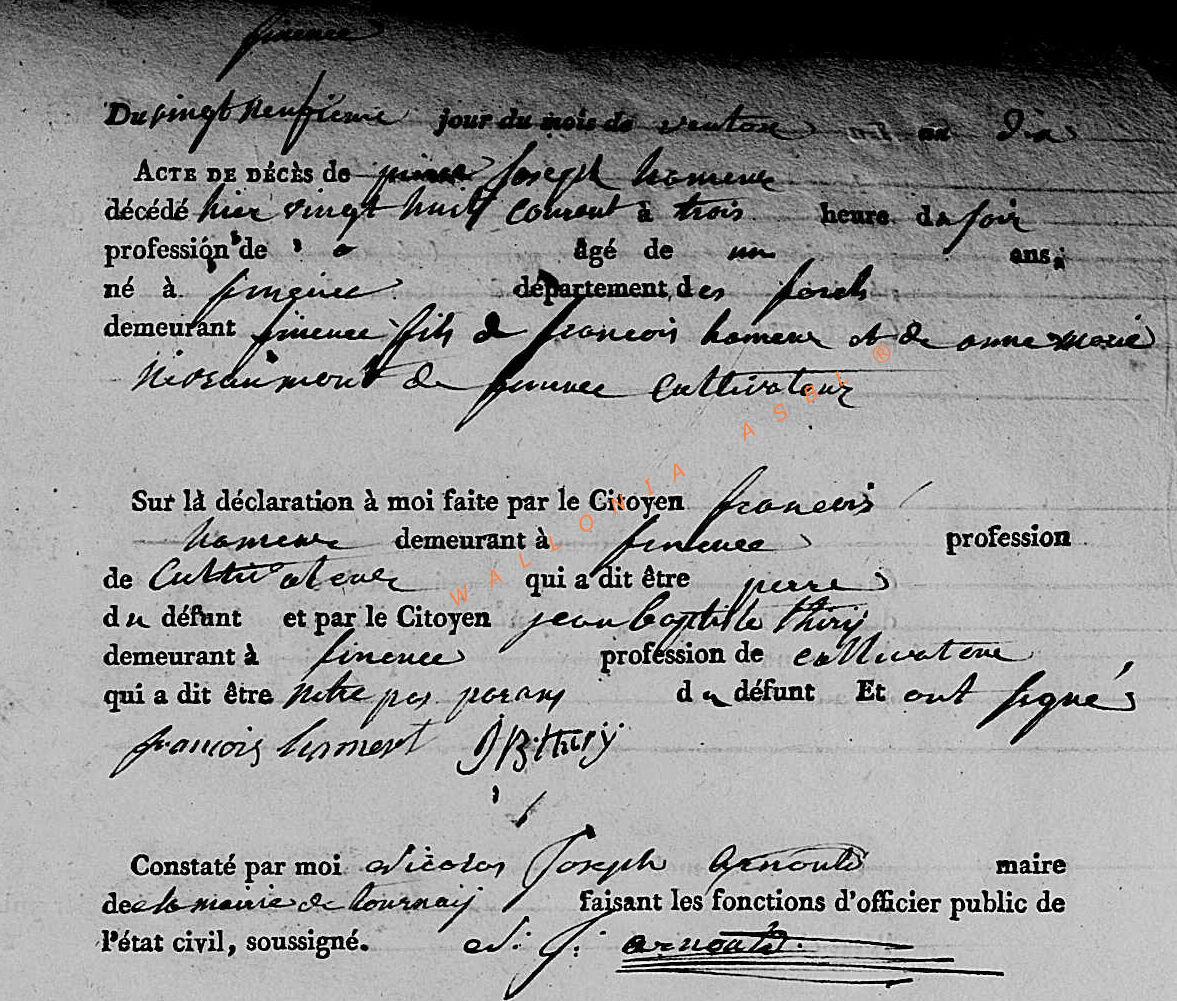 finence
Du vingt neufieme jour du mois de ventose an dix
ACTE DE DÉCÈS de joseph homeur
décédé hier vingt huit courent à trois heure du soir
profession de âgé de un ans;
né à département des forets
demeurant finence fils de francois homeur et de anne marie
de finence cultivateur
Sur là déclaration à moi faite par le Citoyen francois
homeur demeurant à finence profession
de Cultivateur qui a dit être perre
du défunt et par le Citoyen jean baptiste thiry
demeurant à finence profession de cultivateur
qui a dit être netre pas parans du défunt Et ont signé
francois JB thiry
Constaté par moi Nicolas Joseph arnould maire
de la mairie de tournay faisant les fonctions d'officier public de
l'état civil, soussigné. N. J. arnould
WALLONIA ASBL ®